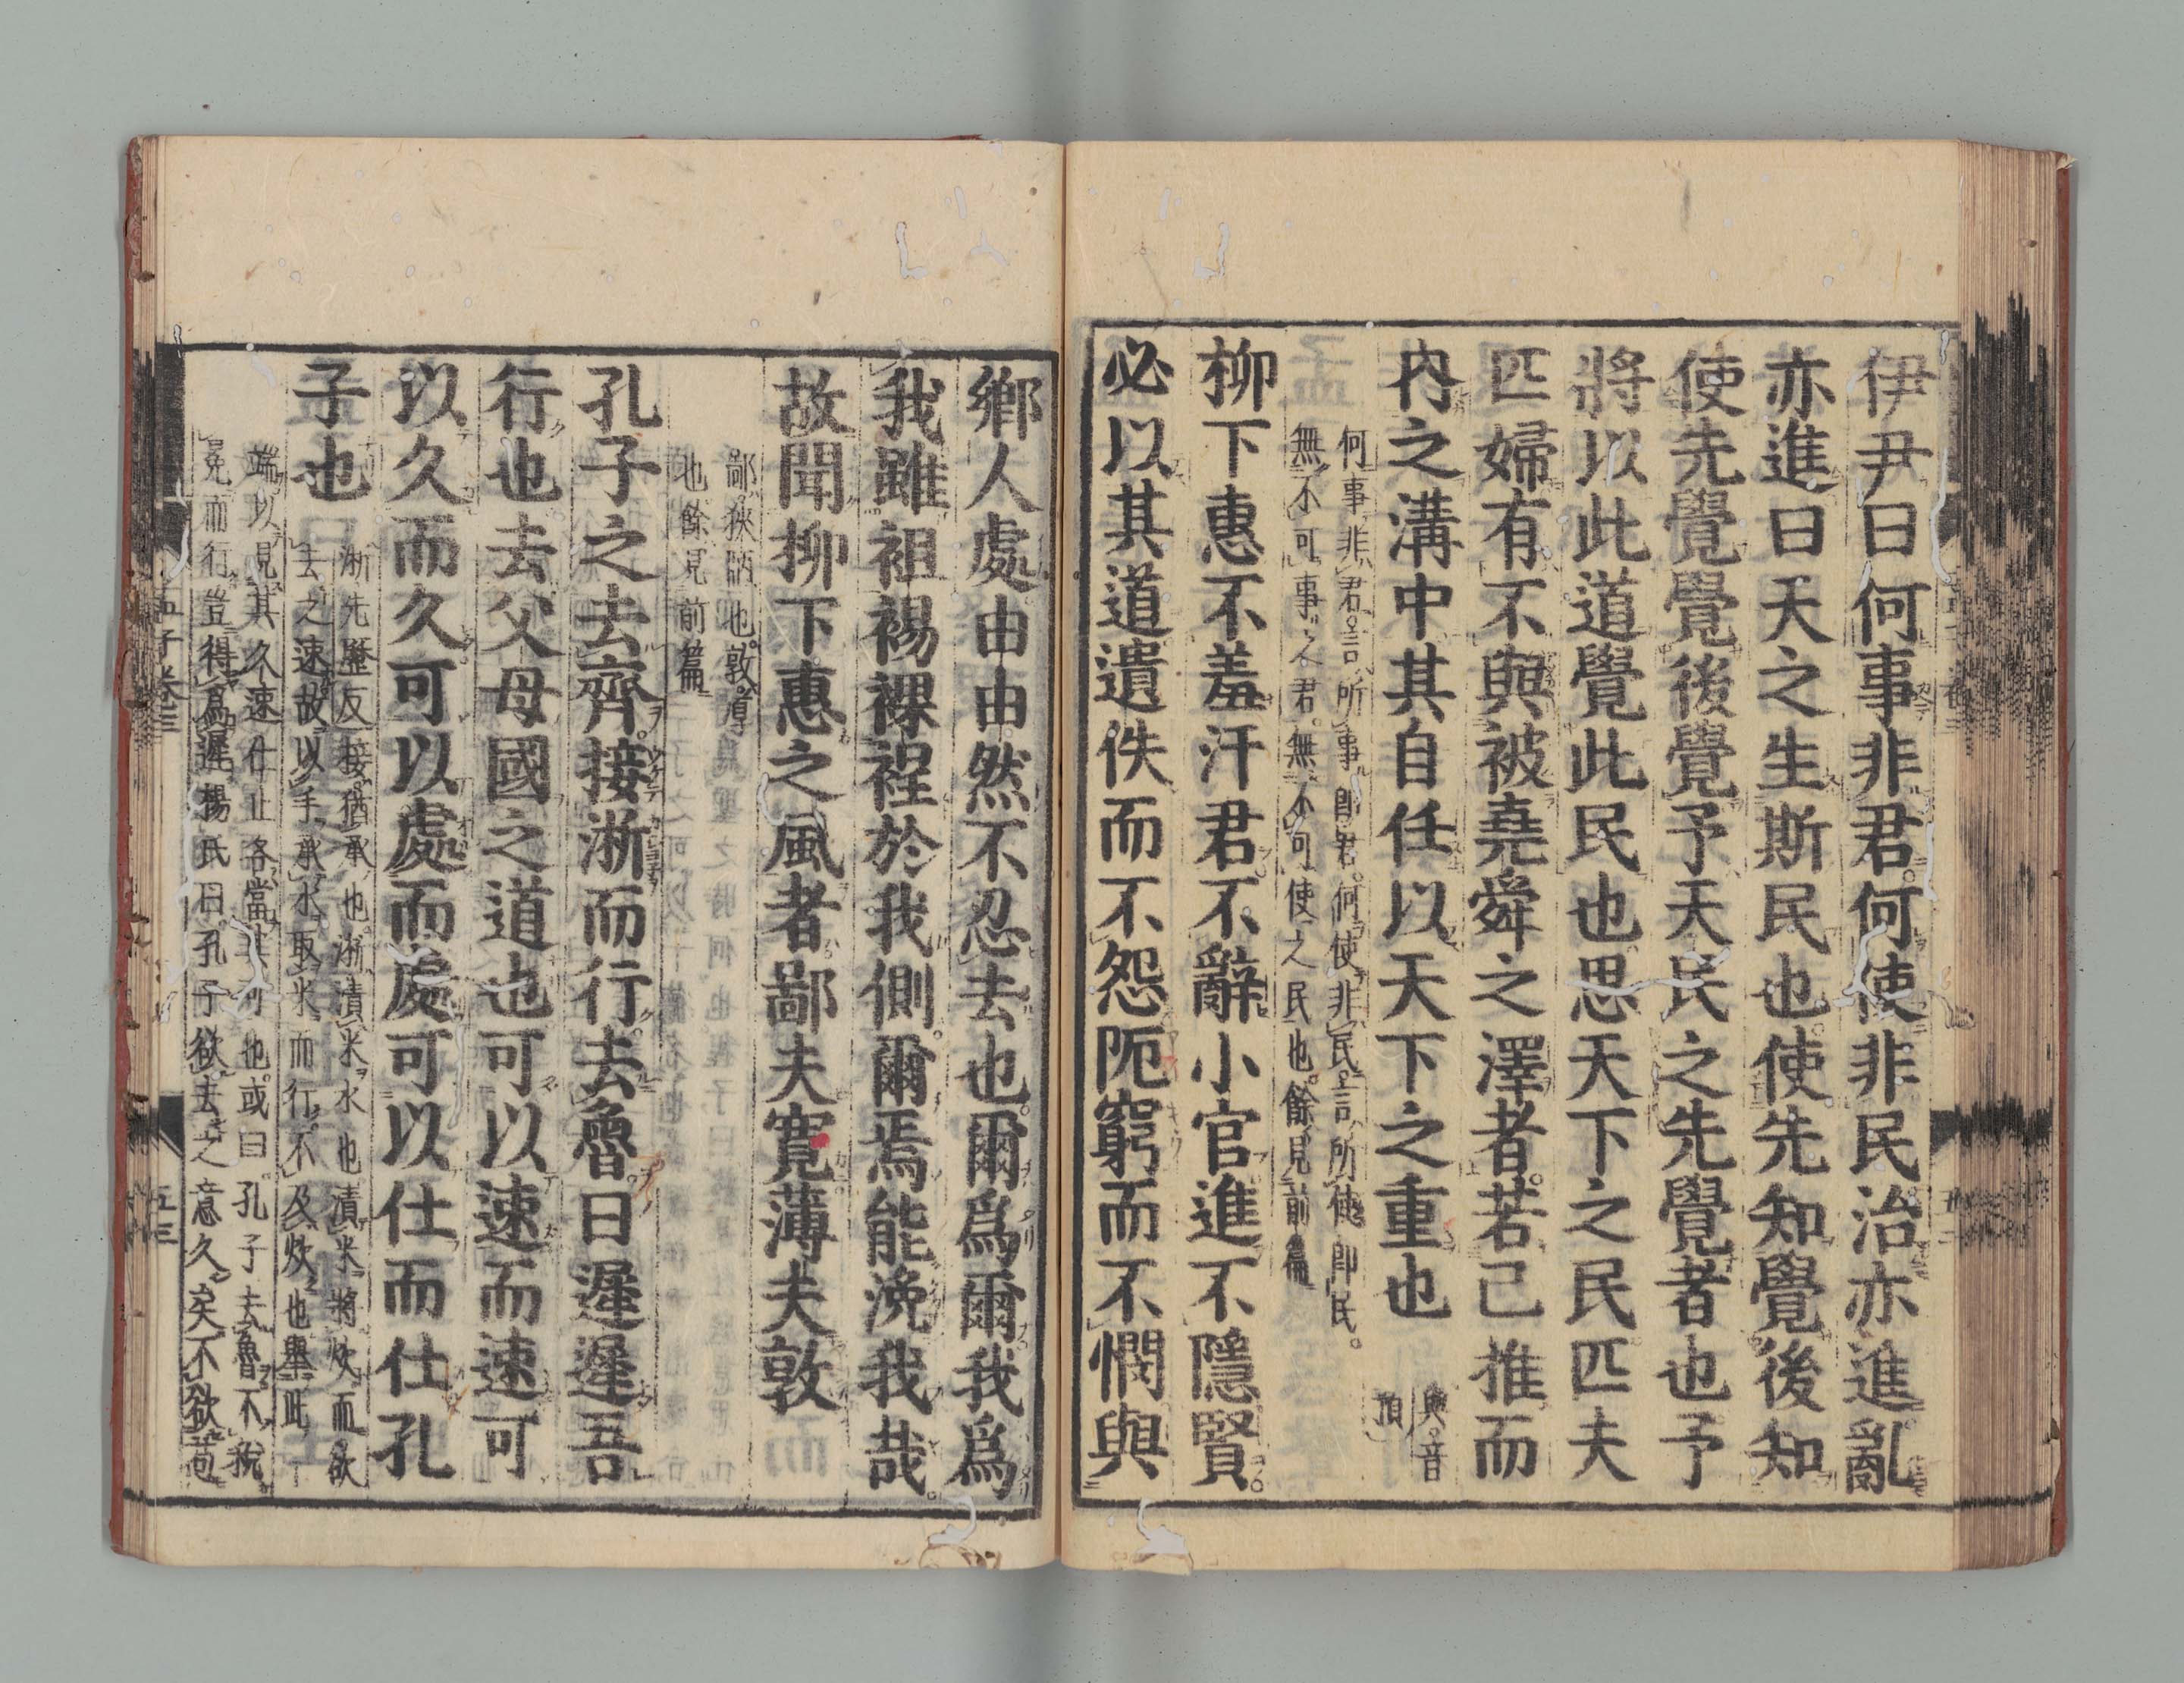 伊尹曰何事非君何使非民治亦進亂
亦進曰天之生斯民也使先知覺後知
使先覺覺後覺予天民之先覺者也予
將以此道覺此民也思天下之民匹夫
匹婦有不與被堯舜之澤者若己推而
內之溝中其自任以天下之重也
與音
預
何事非君言所事即君何使非民言所使即民
無不可事之君無不可使之民也餘見前篇
柳下惠不羞汙君不辭小官進不隱賢
必以其道遺佚而不怨阨窮而不憫與
鄉人處由由然不忍去也爾爲爾我爲
我雖袒裼裸裎於我側爾焉能浼我哉
故聞柳下惠之風者鄙夫寬薄夫敦
鄙狹陋也敦厚
也餘見前篇
孔子之去齊接淅而行去魯曰遲遲吾
行也去父母國之道也可以速而速可
以久而久可以處而處可以仕而仕孔
子也
淅先歷反接猶承也淅漬米水也漬米將炊而欲
去之速故以手承水取米而行不及炊也舉此一
端以見其久速仕止各當其可也或曰孔子去魯不稅
冕而行豈得爲遲楊氏曰孔子欲去之意久矣不欲苟
孟子卷三
五三